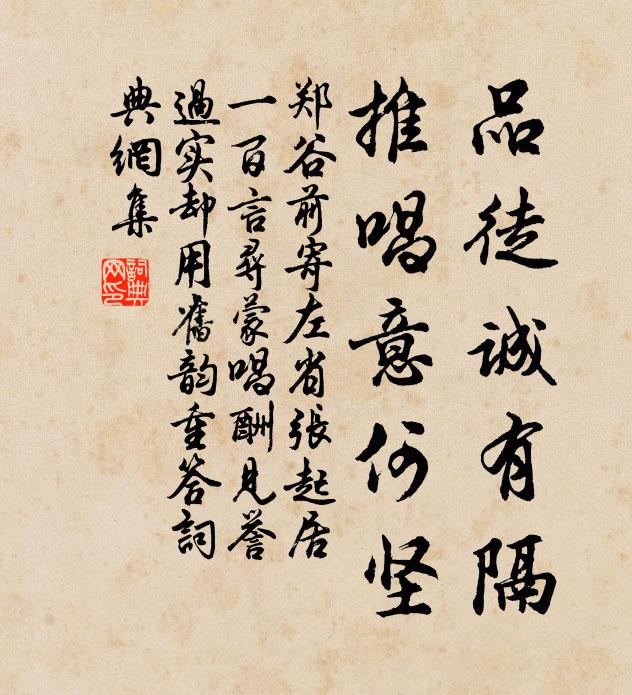 品徒诚有隔
推唱意何坚
郑谷前寄左省张起居
一百言寻蒙唱酬见誉
过实却用旧韵重答词
典网集
詞典
网印